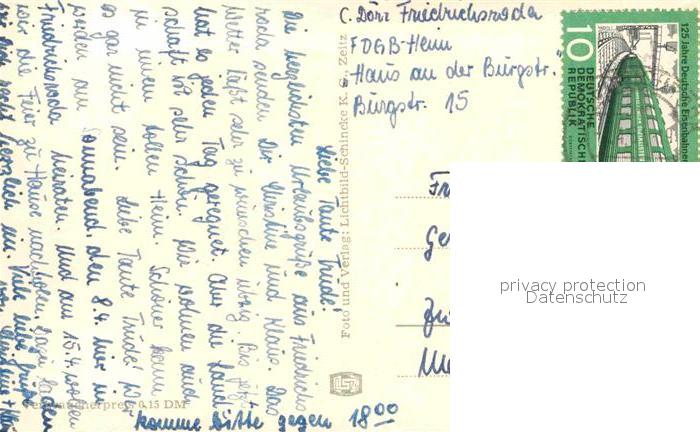 C. Dörr Friedrichsroda
FDGB-Heim
"Haus an der Burgstr."
Burgstr. 15
Liebe Tante Trude!
Die herzlichsten Urlaubsgrüße aus Friedrichs
roda senden Dir Christine und Klaus. Das
Wetter läßt sehr zu wünschen übrig. Bis jetzt
hat es jeden Tag geregnet. Aber die Land
schaft ist sehr schön. Wir wohnen auch
in einem tollen Heim. Schöner kann
es gar nicht sein. Liebe Tante Trude! Wir
werden am Sonnabend, den 8.4. hier in
Friedrichsroda heiraten. Und am 15.4. wollen
wir die Feier zu Hause nachholen. Dazu laden
wir Dich recht herzlich ein. Viele liebe Grüße
von Christine + Klaus
komme bitte gegen 18⁰⁰
Foto und Verlag: Lichtbild-Schincke K. G., Zeitz
Verbraucherpreis 0,15 DM
125 Jahre Deutsche Eisenbahnen
10
DEUTSCHE
DEMOKRATISCHE
REPUBLIK
privacy protection
Datenschutz